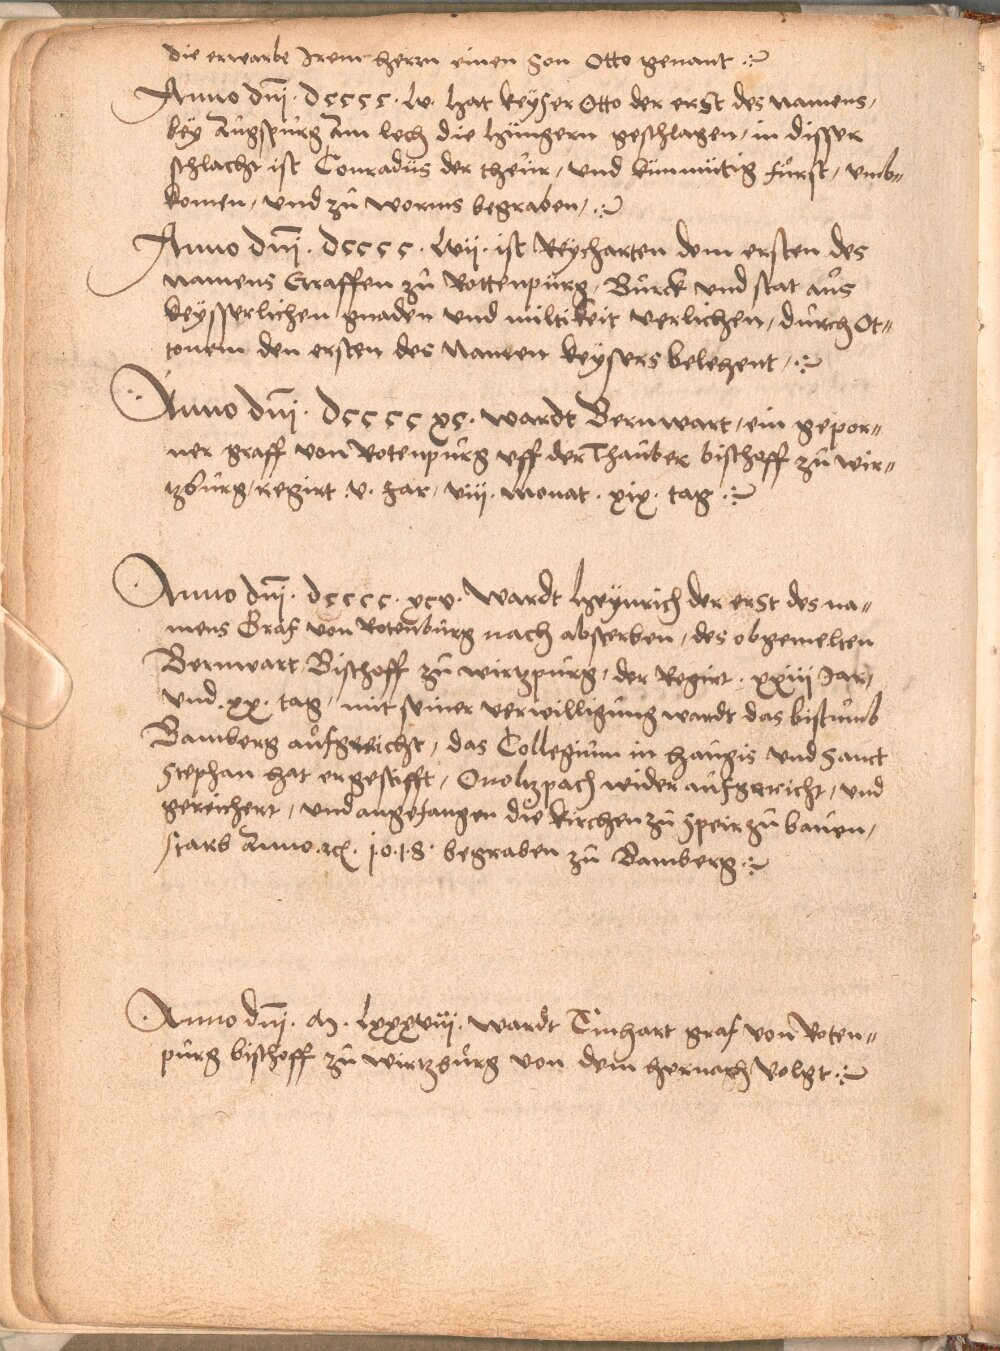 die erwarbe Irem herrn einen Son Otto genant
Anno dnj. dcccc. lv. hat keyser Otto der erSt des namens,
bey Augspurg Am lech die hungern geschlagen, in disser
schlacht ist Conradus der theur, und kunmutig furst, umb„
komen, und zu worms begraben,
Anno dnj. dcccc. lvii. ist Reycharten dem ersten des
namens Graffen zu Rottenpurg, Burck und stat aus
keysserlichen gnaden und miltikeit verlichen, durch Ot„
tonem den ersten des Namen keysers belehent,
Anno dnj. dcccc xc. wardt Bernwart, ein gepor„
ner graff von Rotenpurg uff der Thauber bischoff zu wir„
tzburg, regirt .v. Jar, viii. monat. xix. tag.
Anno dnj. dcccc. xcv. wardt heynrich der erSt des na„
mens Graf von Rotenburg nach absterben, des obgemelten
Bernwart, Bischoff zu wirtzpurg, der Regirt. xxiii Jar,
und. xx. tag, mit seiner verwilligung wardt das bistumb
Bamberg aufgericht, das Collegium in haugis und Sanct
Stephan hat er gestifft, Onoltzpach wider aufgericht, und
gereichert, und angefangen die kirchen zu Speir zu bauen,
starb Anno. 1018. begraben zu Bamberg.
Anno dnj. M. lxxxviii. wardt Einhart graf von Roten„
purg bischoff zu wirtzburg von dem hernach volgt.